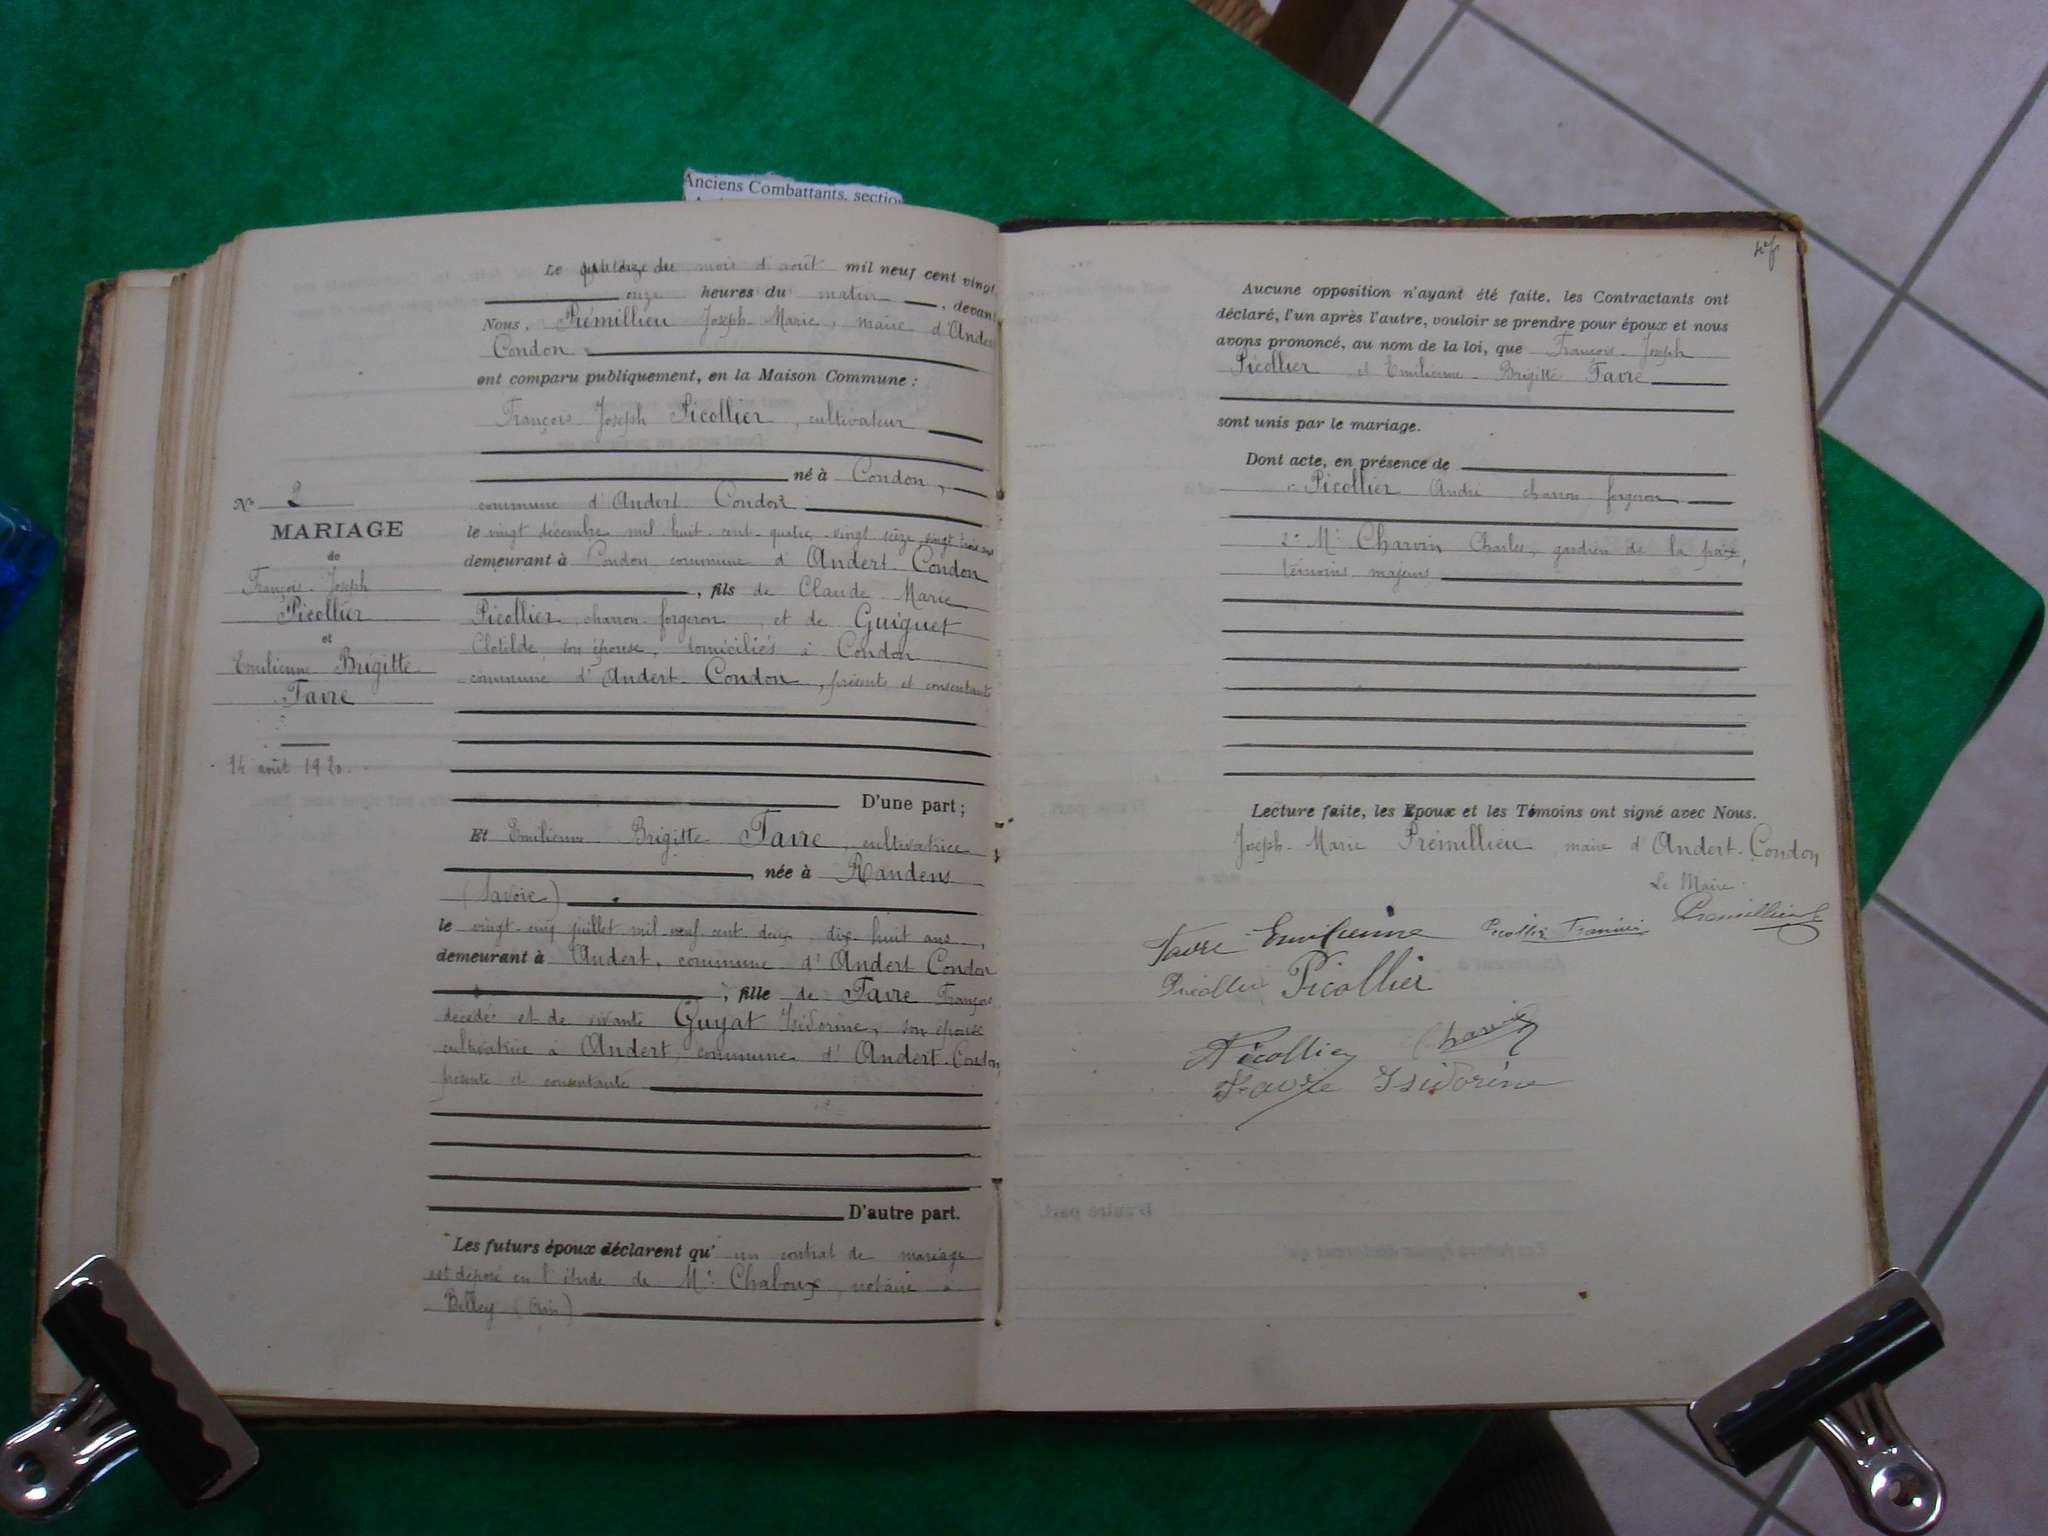 Anciens Combattants, section
Le quatorze du mois d'août mil neuf cent vingt
onze heures du matin, devant
Nous, Prémillieu Joseph Marie, maire d'Andert
Condon
ont comparu publiquement, en la Maison Commune :
François Joseph Picollier, cultivateur
né à Condon,
commune d'Andert-Condon
le vingt décembre mil huit cent quatre vingt seize, vingt trois ans
demeurant à Condon commune d'Andert-Condon
, fils de Claude Marie
Picollier, charron forgeron, et de Guiguet
Clotilde son épouse, domiciliés à Condon
commune d'Andert-Condon, présents et consentants
D'une part;
Et Emilienne Brigitte Favre, cultivatrice
, née à Randens
(Savoie)
le vingt cinq juillet mil neuf cent deux, dix huit ans,
demeurant à Andert, commune d'Andert Condon
, fille de Favre François
décédé et de vivante Guyat Isidorine, son épouse
cultivatrice à Andert, commune d'Andert-Condon,
présente et consentante
D'autre part.
Les futurs époux déclarent qu'un contrat de mariage
est déposé en l'étude de Me Chaboux, notaire à
Belley (Ain)
No 2
MARIAGE
de
François Joseph
Picollier
et
Emilienne Brigitte
Favre
14 août 1920.
Aucune opposition n'ayant été faite, les Contractants ont
déclaré, l'un après l'autre, vouloir se prendre pour époux et nous
avons prononcé, au nom de la loi, que François Joseph
Picollier et Emilienne Brigitte Favre
sont unis par le mariage.
Dont acte, en présence de
1º Picollier André charron forgeron
2º Mr Charvin Charles, gardien de la paix,
témoins majeurs
Lecture faite, les Epoux et les Témoins ont signé avec Nous.
Joseph-Marie Prémillieu maire d'Andert-Condon
Le Maire
Prémillieu
Favre Emilienne Picollier François
Picollier Picollier
Picollier Charvin
Favre Isidorine